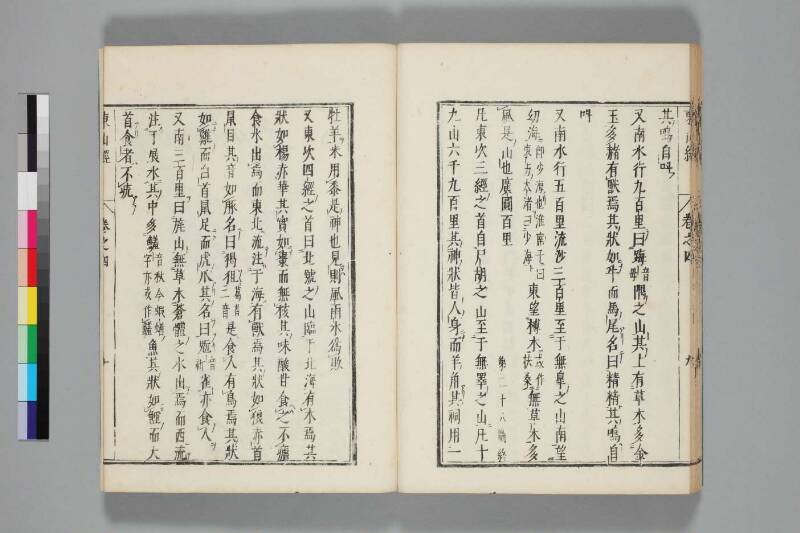 其鳴自叫
又南水行九百里曰踇音敏隅之山其上有草木多金
玉多赭有獸焉其狀如牛而馬尾名曰精精其鳴自
叫
又南水行五百里流沙三百里至于無皐之山南望
幼海即少海也淮南子曰東方大渚曰少海東望榑木或作扶桑無草木多
風是山也廣圓百里
凡東次三經之首自尸胡之山至于無皐之山凡十
九山六千九百里其神狀皆人身而羊角其祠用一
卷之四
牡羊米用黍是神也見則風雨水爲敗
又東次四經之首曰北號之山臨于北海有木焉其
狀如楊赤華其實如棗而無核其味酸甘食之不瘧
食水出焉而東北流注于海有獸焉其狀如狼赤首
鼠目其音如豚名曰猲狙是食人有鳥焉其狀
如雞而白首鼠足而虎爪其名曰鬿雀亦食人
又南三百里曰旄山無草木蒼體之水出焉而西流
注于展水其中多鱃魚其狀如鯉而大
首食者不疣
東山經
卷之四